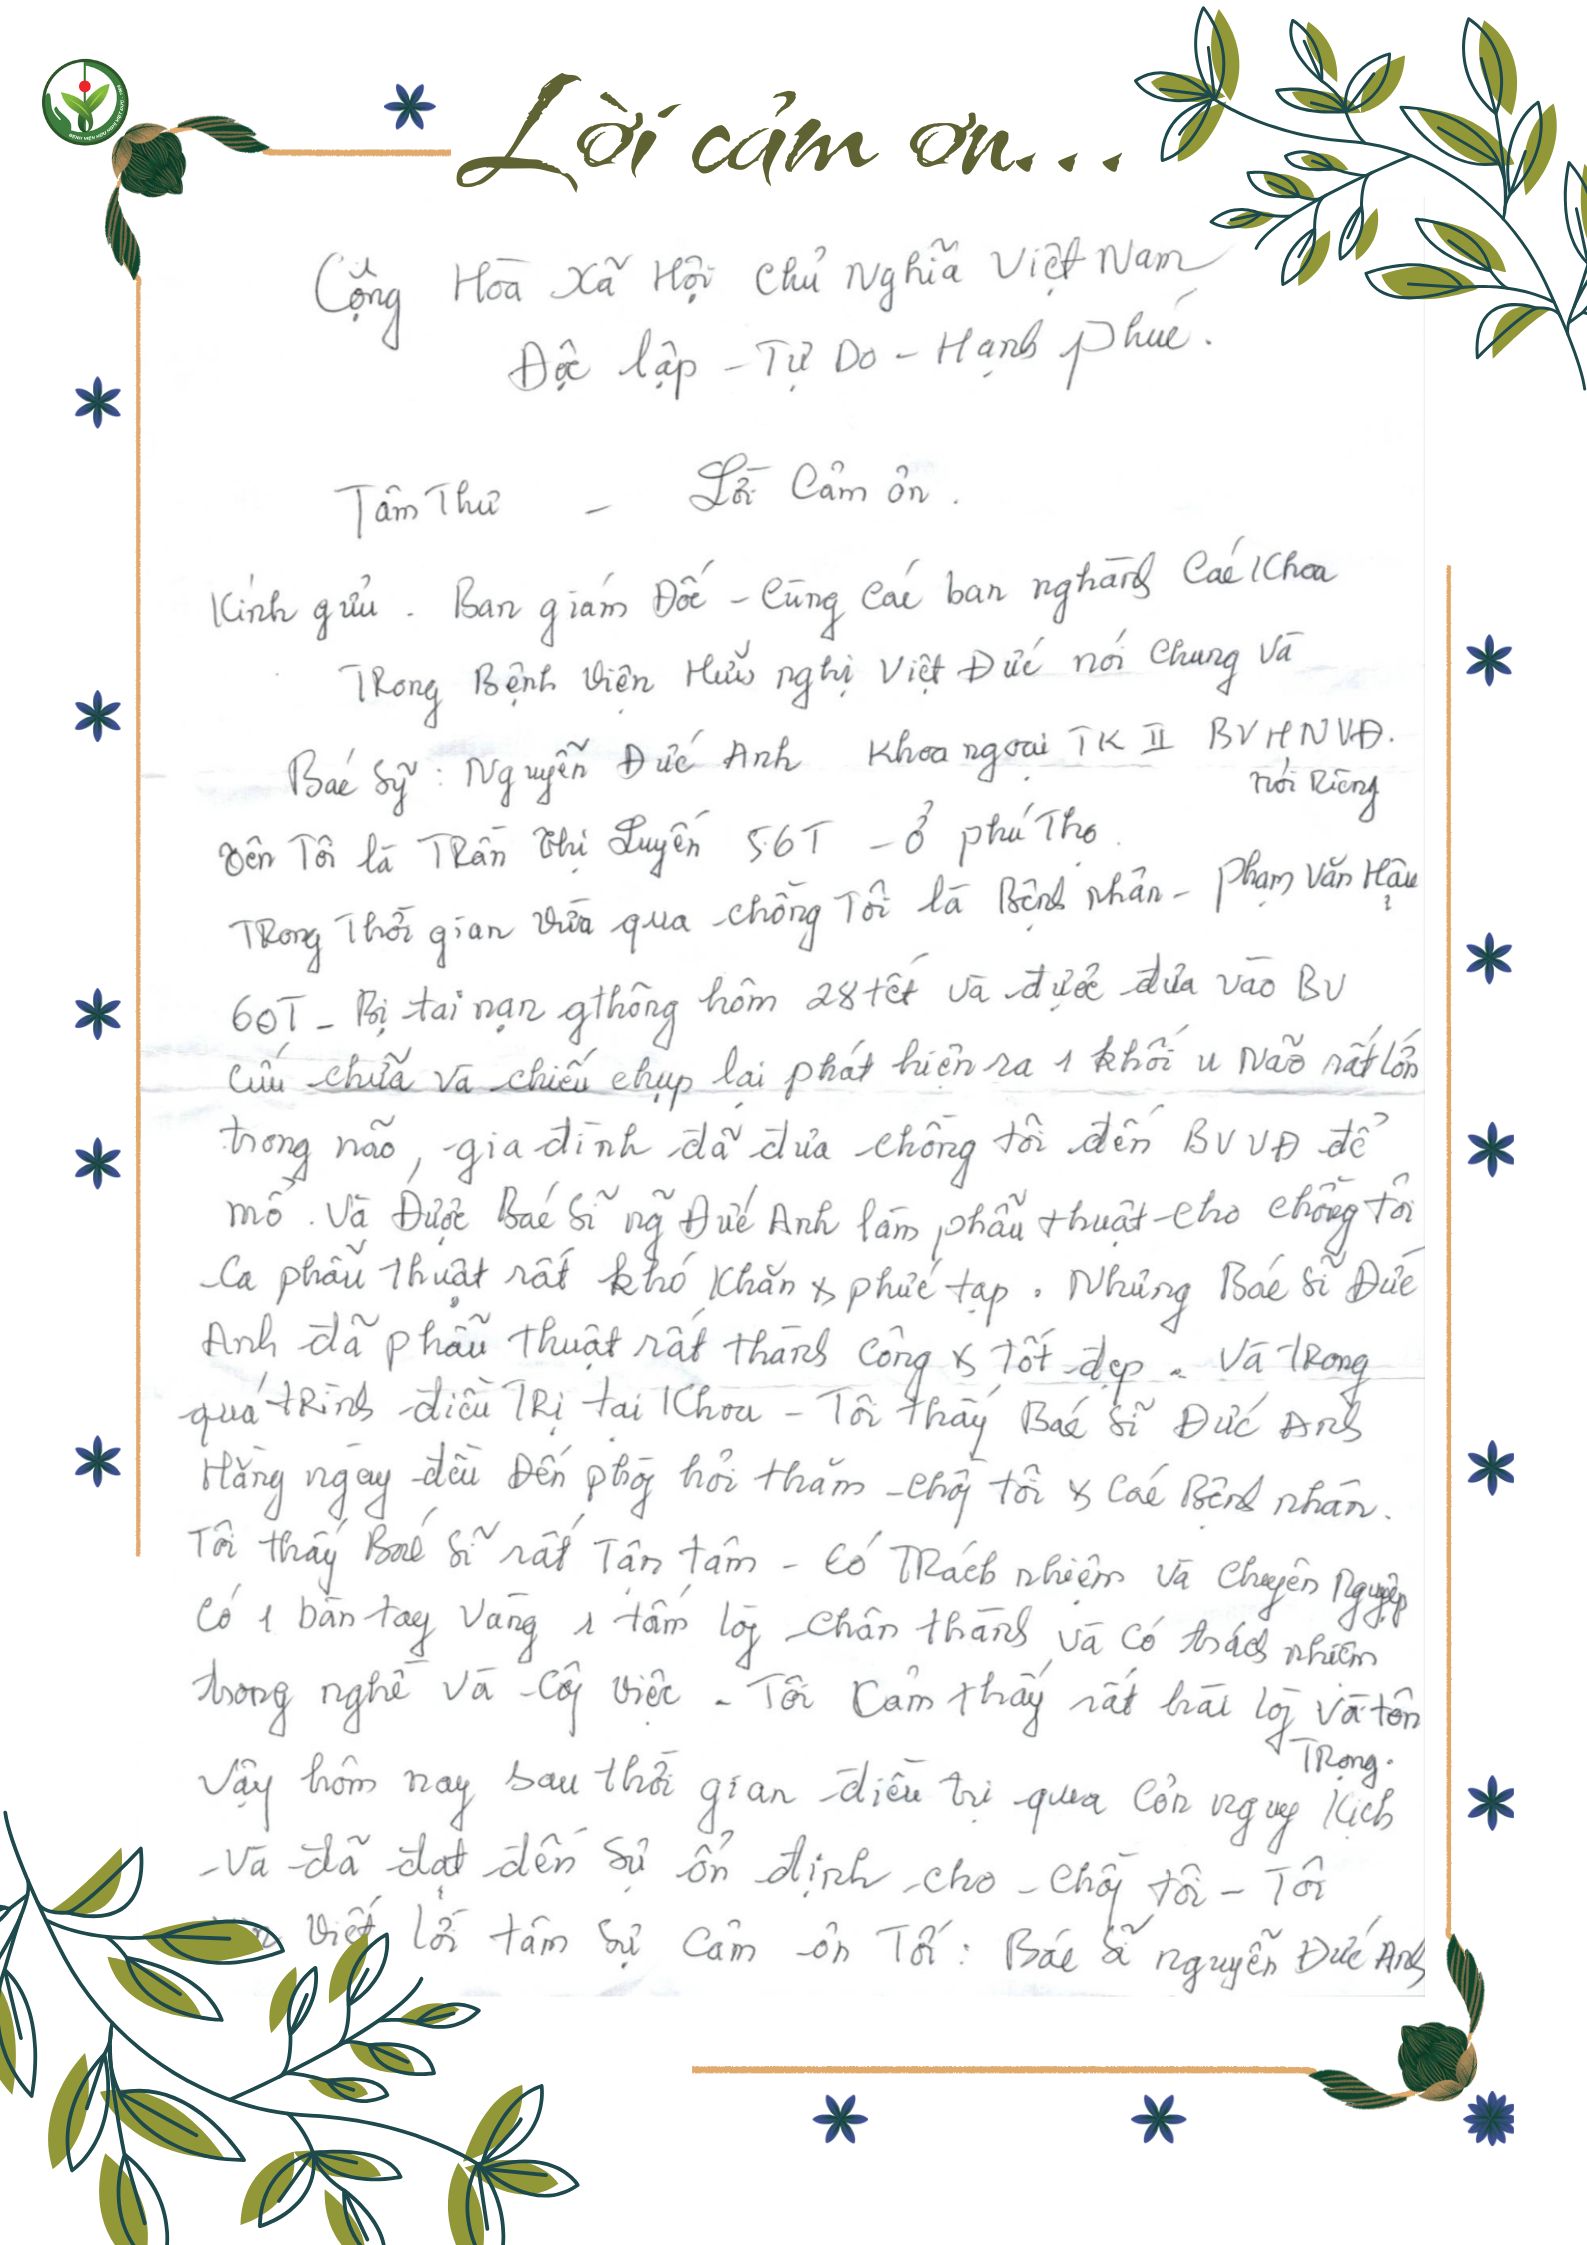 Lời cảm ơn...
BỆNH VIỆN HỮU NGHỊ VIỆT ĐỨC
Cộng Hòa Xã Hội Chủ Nghĩa Việt Nam
Độc lập - Tự Do - Hạnh phúc.
Tâm Thư - Lời Cảm ơn.
Kính gửi. Ban giám Đốc - Cùng Các ban nghành Các Khoa
Trong Bệnh viện Hữu nghị Việt Đức nói chung và
Bác sỹ: Nguyễn Đức Anh Khoa ngoại TK II BVHNVĐ.
nói Riêng
Tên Tôi là Trần Thị Luyến 56T - ở phú Thọ.
Trong Thời gian vừa qua chồng Tôi là Bệnh nhân - Phạm Văn Hậu
60T - Bị tai nạn gthông hôm 28 tết và được đưa vào BV
Cứu chữa và chiếu chụp lại phát hiện ra 1 khối u Não rất lớn
trong não, gia đình đã đưa chồng tôi đến BVVĐ để
mổ. Và Được Bác sĩ ng Đức Anh làm phẫu thuật cho chồng tôi
Ca phẫu thuật rất khó khăn & phức tạp. Nhưng Bác sĩ Đức
Anh đã phẫu thuật rất thành công & tốt đẹp. Và trong
quá trình điều Trị tại Khoa - Tôi thấy Bác sĩ Đức Anh
Hằng ngày đều Đến phòg hỏi thăm chồg tôi & Các Bệnh nhân.
Tôi thấy Bác sĩ rất Tận tâm - Có Trách nhiệm và chuyên Nguyệp
Có 1 bàn tay vàng 1 tấm lòg chân thành và Có trách nhiệm
trong nghề và Côg việc - Tôi Cảm thấy rất hài lòg và tôn
Trọng.
Vậy hôm nay sau thời gian điều trị qua Cơn nguy Kịch
và đã đạt đến sự ổn định cho chồg tôi - Tôi
viết lời tâm sự cảm ơn Tới: Bác sĩ nguyễn Đức Anh